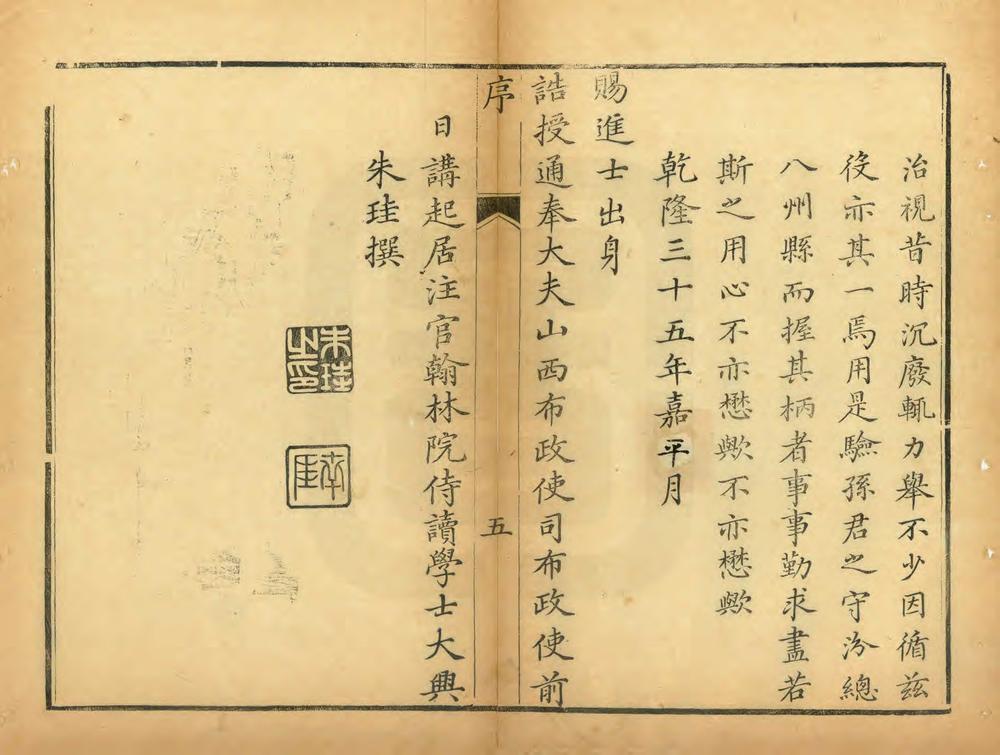 治視昔時沉廢輒力舉不少因循茲
役亦其一焉用是驗孫君之守汾總
八州縣而握其柄者事事勤求盡若
斯之用心不亦懋歟不亦懋歟
乾隆三十五年嘉平月
賜進士出身
誥授通奉大夫山西布政使司布政使前
序
五
日講起居注官翰林院侍讀學士大興
朱珪撰
朱珪之印